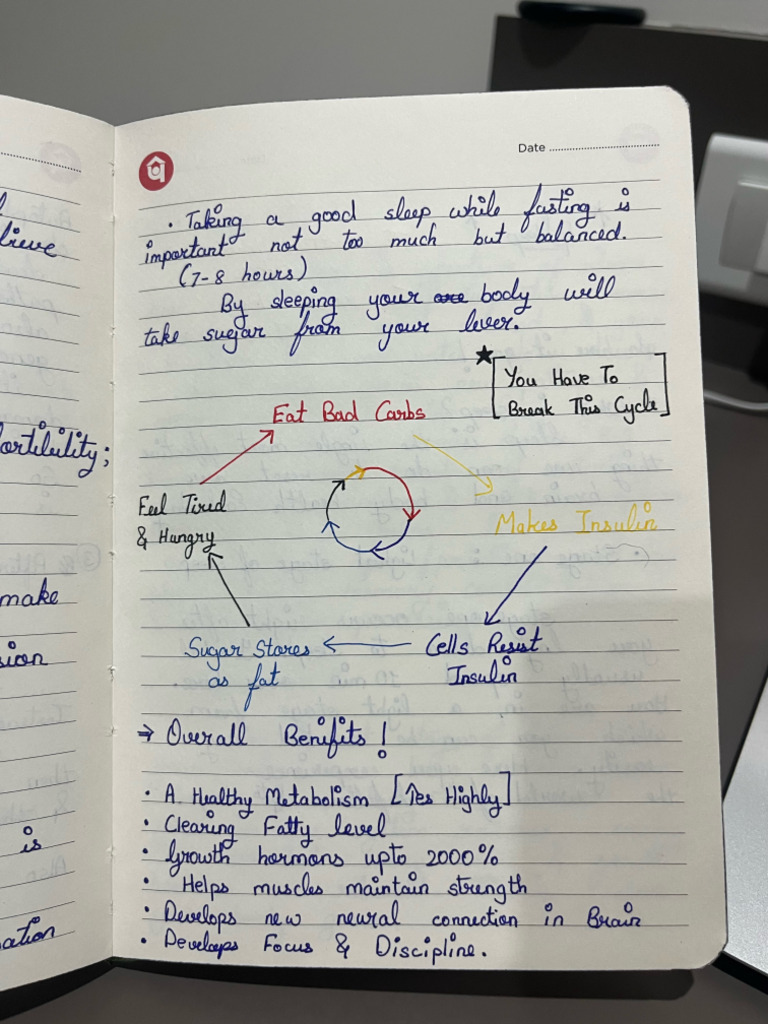 Date
lieve
ortilility;
make
sion
is
ation
• Taking a good sleep while fasting is
important not too much but balanced.
(7-8 hours)
By sleeping your body will
take sugar from your lever.
★ [You Have To
Break This Cycle]
Eat Bad Carbs
Feel Tired
& Hungry
Makes Insulin
Sugar Stores
as fat
Cells Resist
Insulin
⇒ Overall Benifits!
• A Healthy Metabolism [↑es Highly]
• Clearing Fatty level
• Growth hormons upto 2000%
• Helps muscles maintain strength
• Develops new neural connection in Brain
• Develops Focus & Discipline.